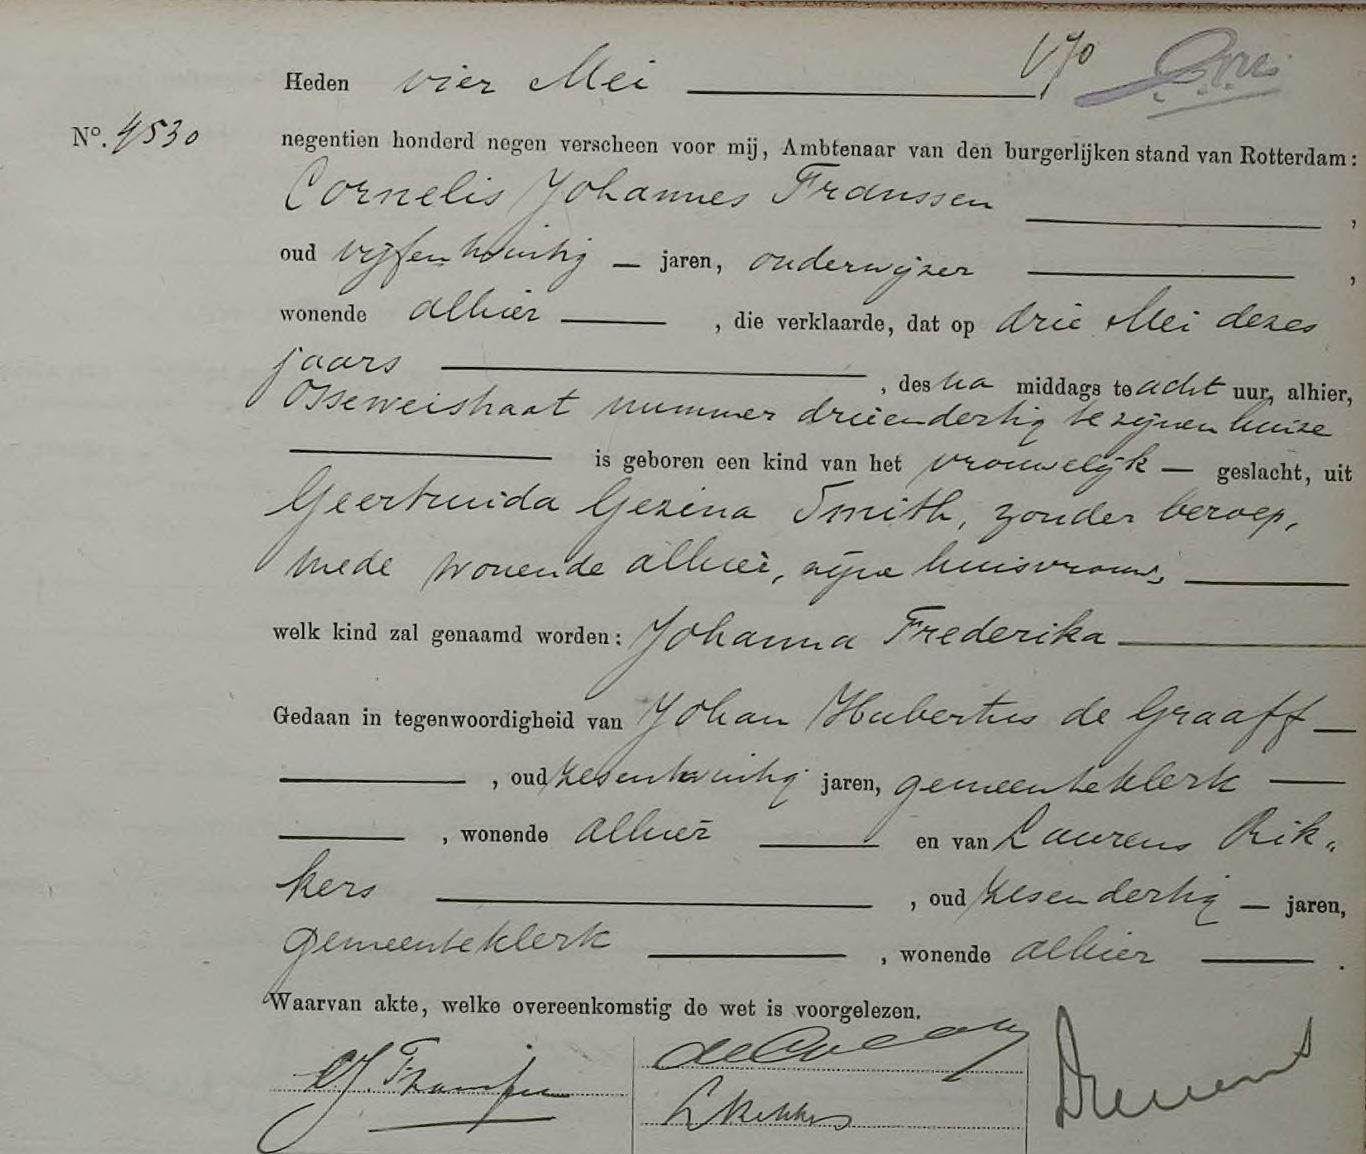 Heden vier Mei
Nº. 4530
negentien honderd negen verscheen voor mij, Ambtenaar van den burgerlijken stand van Rotterdam:
Cornelis Johannes Franssen ,
oud vijfentwintig — jaren, onderwijzer ,
wonende alhier , die verklaarde, dat op drie Mei dezes
jaars , des na middags te acht uur, alhier,
Osseweistraat nummer drieendertig te zijnen huize
is geboren een kind van het vrouwelijk — geslacht, uit
Geertruida Gezina Smith, zonder beroep,
mede wonende alhier, zijne huisvrouw,
welk kind zal genaamd worden: Johanna Frederika
Gedaan in tegenwoordigheid van Johan Hubertus de Graaff
, oud zesentwintig jaren, gemeenteklerk
, wonende alhier en van Laurens Rik-
kers , oud zesendertig — jaren,
gemeenteklerk , wonende alhier .
Waarvan akte, welke overeenkomstig de wet is voorgelezen.
CJ. Franssen
de Graaff
L Rikkers